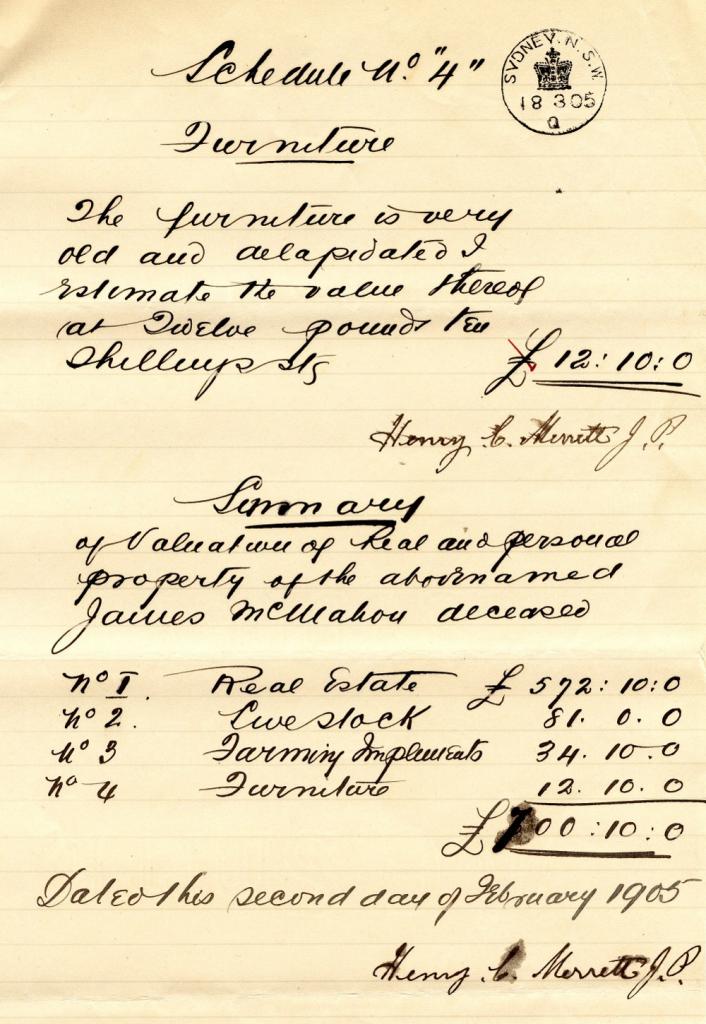 Schedule No. "4"
SYDNEY. N. S. W
18 3 05
Q
Furniture
The furniture is very
old and delapidated I
estimate the value thereof
at Twelve pounds ten
Shillings stg
£ 12: 10: 0
Henry C. Merrett J. P.
Summary
of Valuation of Real and personal
property of the abovenamed
James McMahon deceased
No 1. Real Estate £ 572: 10: 0
No 2. Live stock 81. 0. 0
No 3 Farming Implements 34. 10. 0
No 4 Furniture 12. 10. 0
£700: 10: 0
Dated this second day of February 1905
Henry C. Merrett J. P.